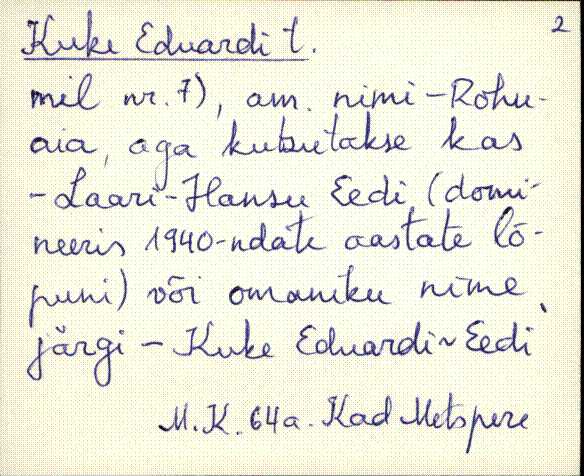 2
Kuke Eduardi t.
mil nr. 7), am. nimi - Rohu-
aia, aga kutsutakse kas
- Laari - Hansu Eedi (domi-
neeris 1940-ndate aastate lõ-
puni) või omaniku nime
järgi - Kuke Eduardi ~ Eedi
M.K. 64a. Kad Metspere